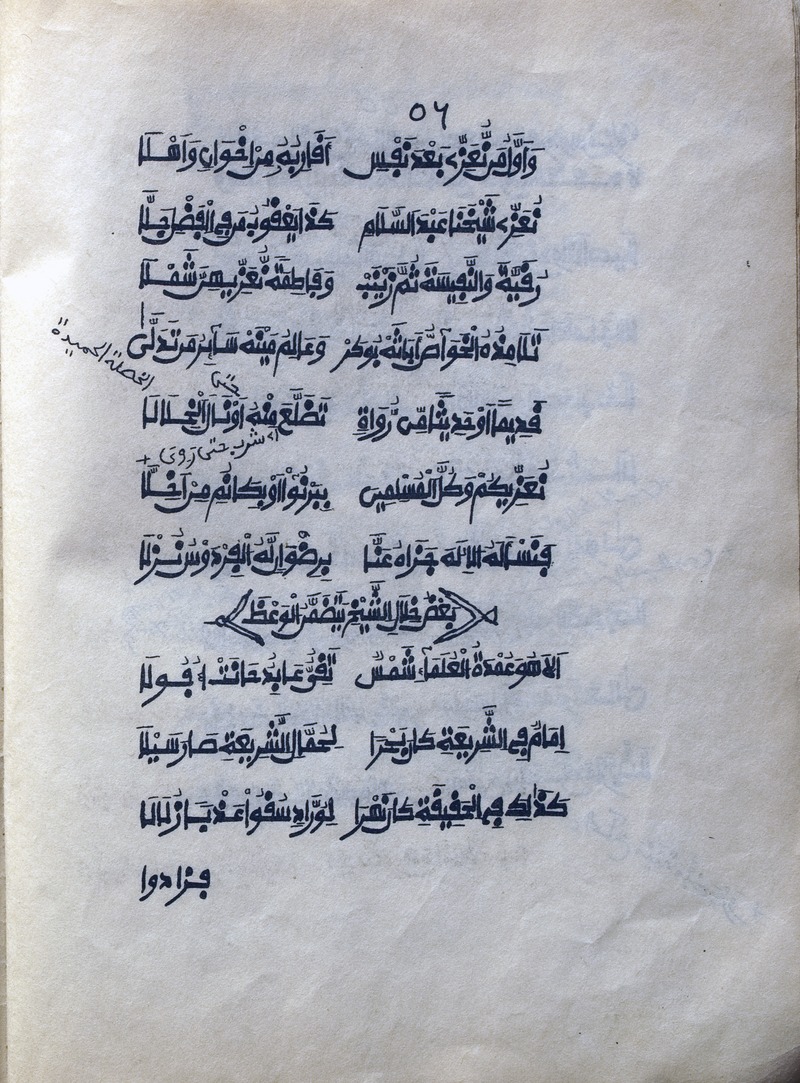 ٥٦
وَأَوَّلُ مَنْ نُعَزِّي بَعْدَ نَفْسِي أَقَارِبُهُ مِنْ اِخْوَانٍ وَاَهْلَا
نُعَزِّي شَيْخَنَا عَبْدَ السَّلَامِ كَذَا يَعْقُوبُ مَنْ فِي الْفَضْلِ جَلَّا
رُقَيَّةَ وَالنَّفِيسَةَ ثُمَّ زَيْنَبْ وَفَاطِمَةً نُعَزِّيهِنَّ شَمْلَا
تَلَامِذُهُ الْخَوَاصُّ بُوبَكَرْ وَعَالِمُ سَائِرُ مَنْ تَدَلَّى
قَدِيمًا اَوْ حَدِيثًا مِنْ رُوَاةِ تَضَلَّعَ مِنْهُ اَوْ نَالَ الْخَلَالَا
حتى
الخصلة الحميدة
اي شرب حتى روى +
نُعَزِّيكُمْ وَكُلَّ الْمُسْلِمِينَ مِنْ اَخِلَّا
فَنَسْأَلُهُ الْاِلَهَ جَزَاهُ عَنَّا بِرِضْوَانٍ لَهُ الْفِرْدَوْسُ نُزْلَا
بَعْضُ خِلَالِ الشَّيْخِ يَتَضَمَّنُ الْوَعْظَ
اَلَا هُوَ عُمْدَةُ الْعُلَمَاءِ شَمْسٌ تَقِيٌّ عَابِدٌ قَوْلَا
اِمَامٌ فِي الشَّرِيعَةِ كَانَ بَحْرًا لِحَمَّالِ الشَّرِيعَةِ صَارَ سَيْلَا
كَذَلِكَ فِي الْحَقِيقَةِ كَانَ نَهْرًا لِوُرَّادٍ سُقُوا عَذْبًا زُلَالَا
فزادوا